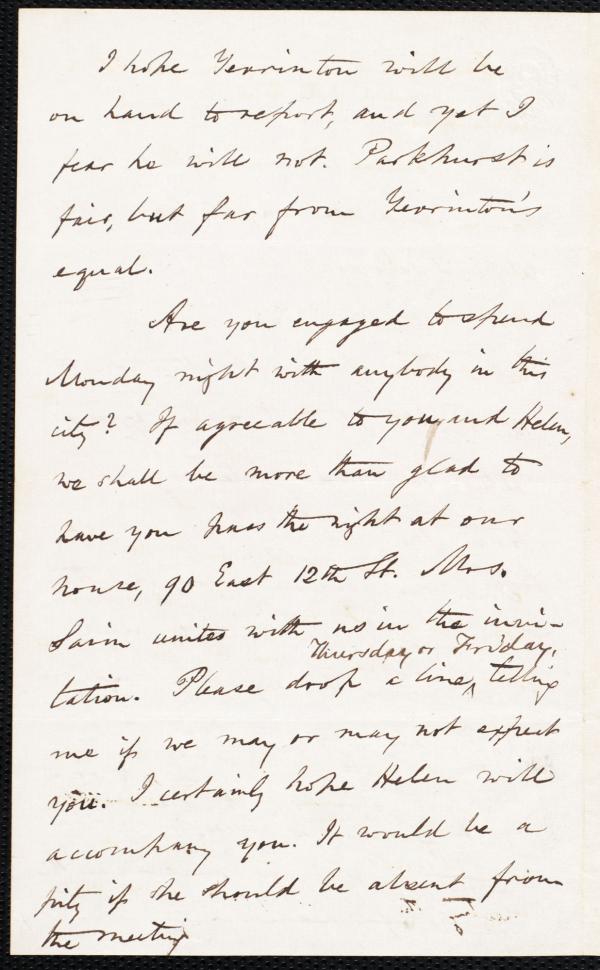 I hope Yerrinton will be
on hand to report, and yet I
fear he will not. Parkhurst is
fair, but far from Yerrinton's
equal.
Are you engaged to spend
Monday night with anybody in this
city? If agreeable to you and Helen,
we shall be more than glad to
have you pass the night at our
house, 90 East 12th St. Mrs.
Savin unites with us in the invi-
Thursday or Friday,
tation. Please drop a line, ‸ telling
me if we may or may not expect
you. I certainly hope Helen will
accompany you. It would be a
pity if she should be absent from
the meeting